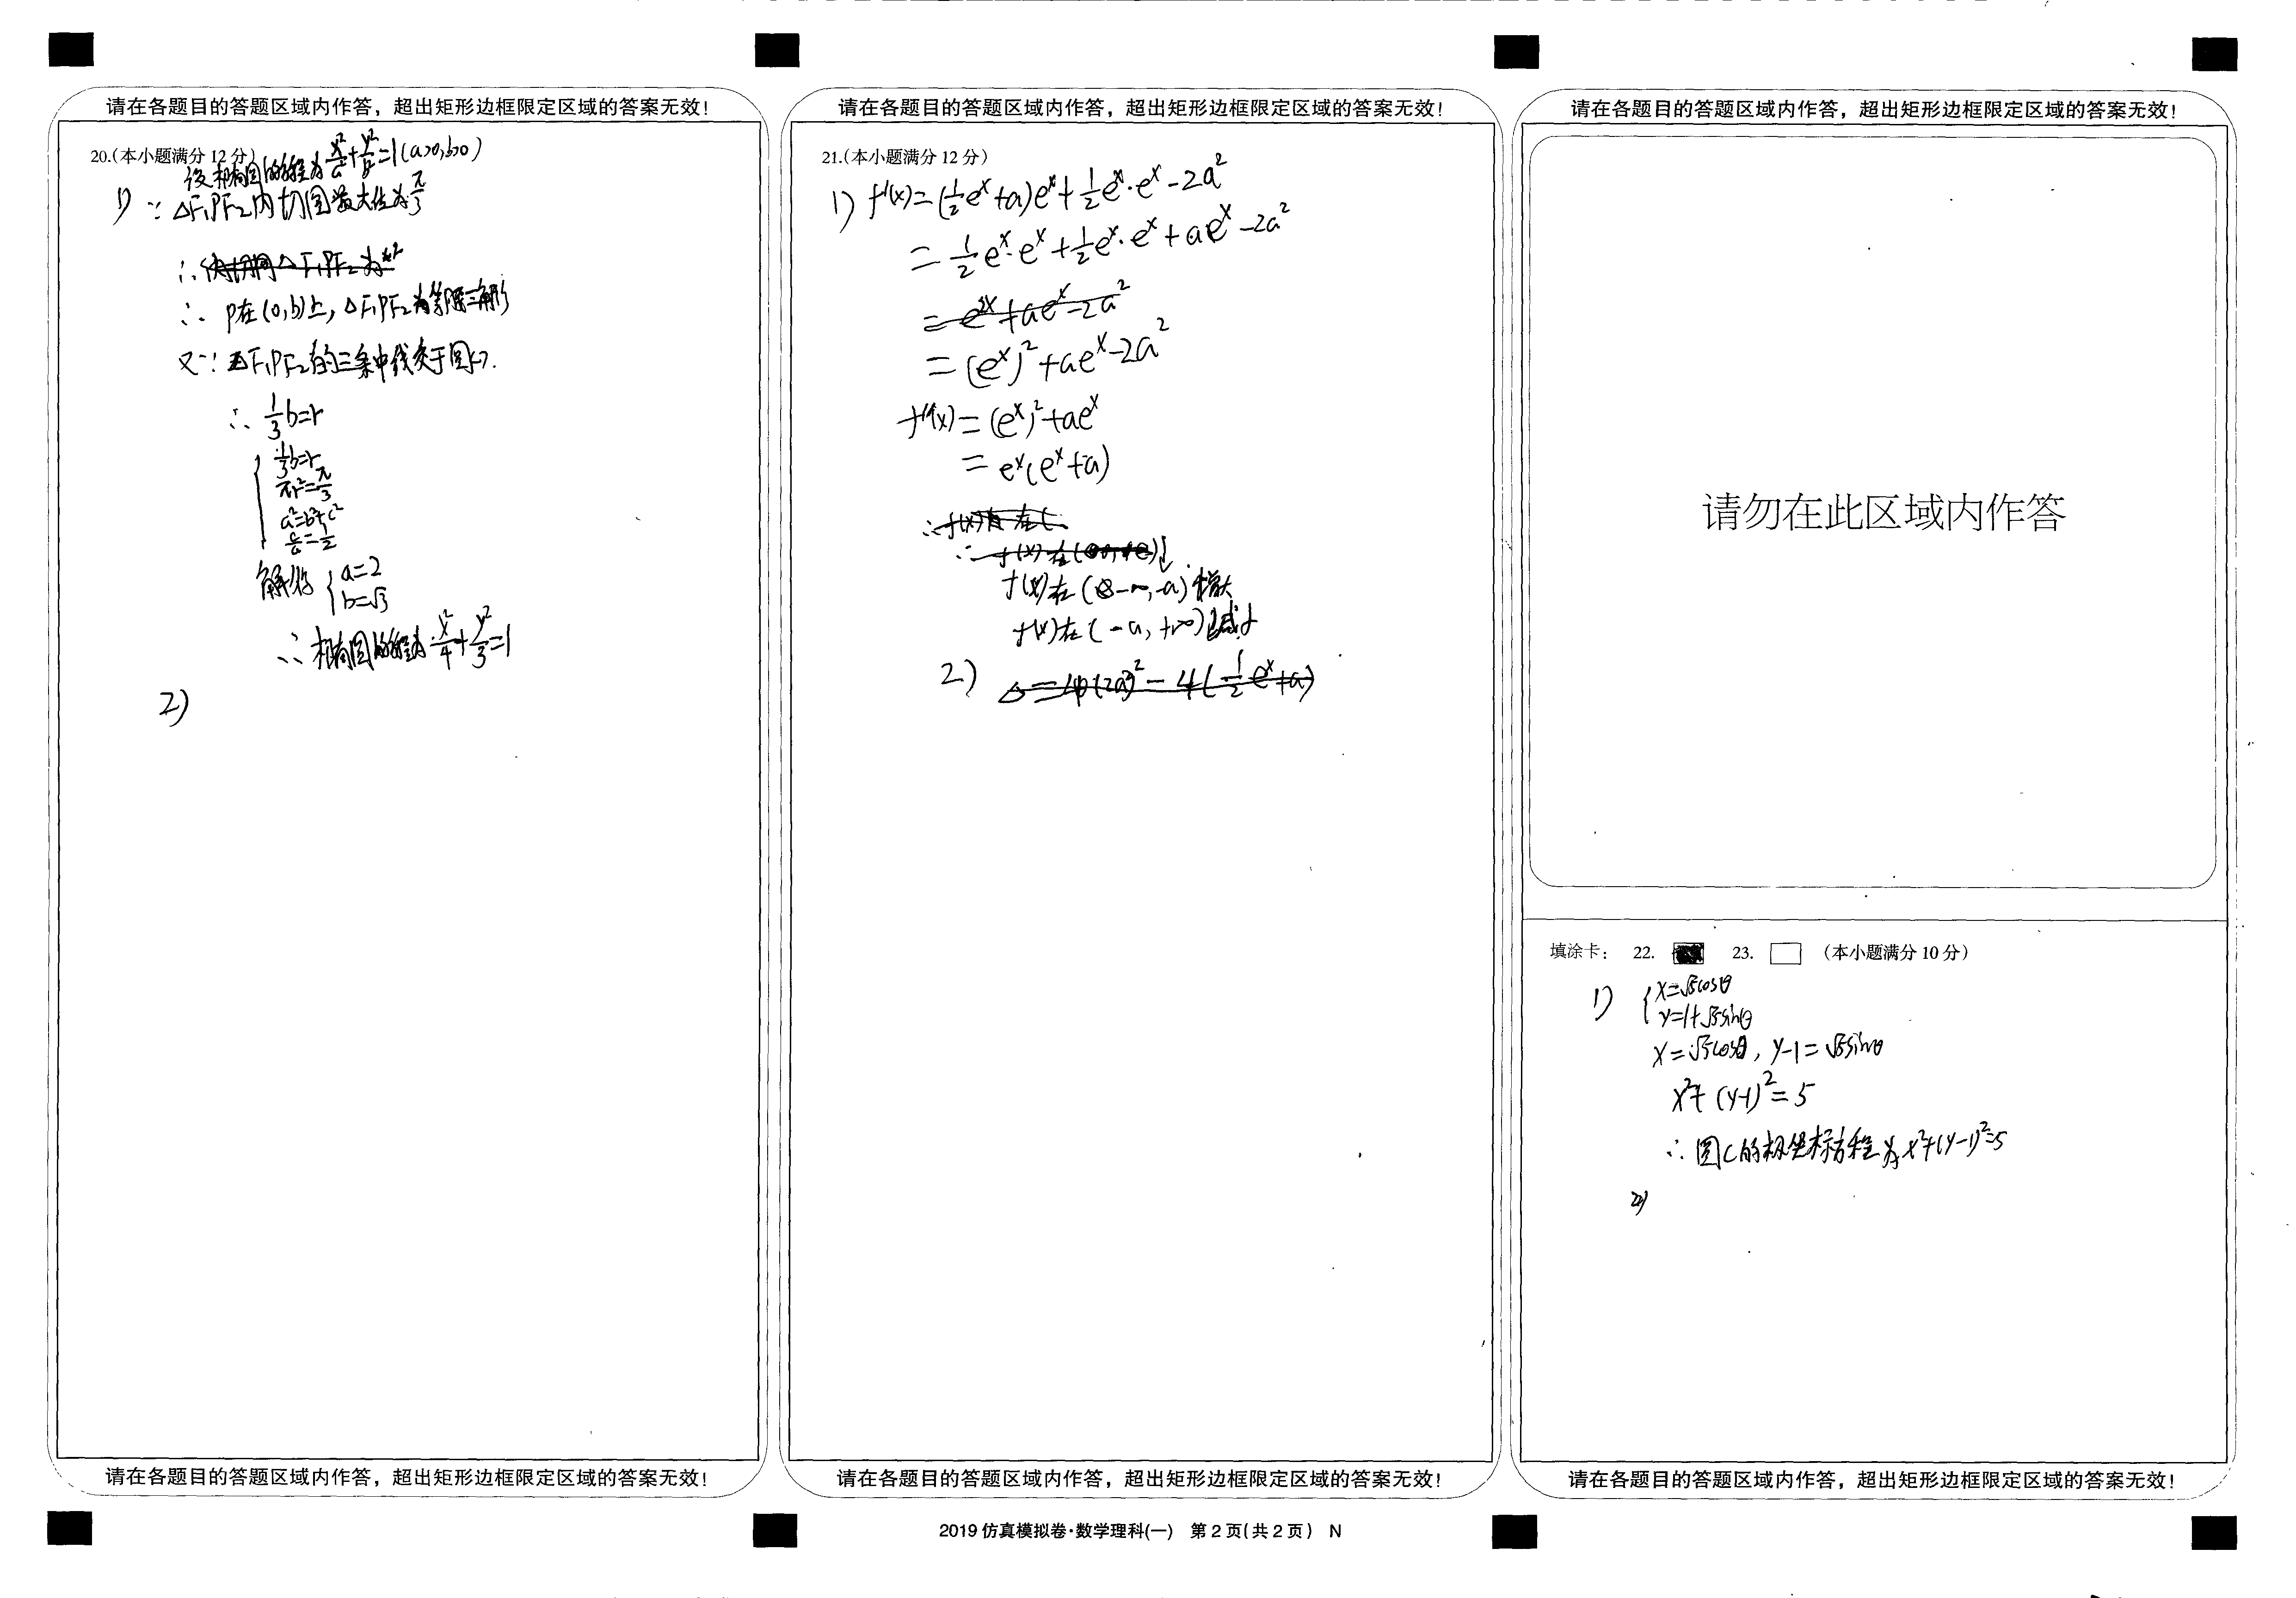 请在各题目的答题区域内作答，超出矩形边框限定区域的答案无效！
20.(本小题满分12分)
设椭圆的方程为x²/a²+y²/b²=1(a>0,b>0)
1) ∵ △F₁PF₂内切圆最大值为π/3
∴ P在(0,b)上, △F₁PF₂为等腰三角形
又∵ △F₁PF₂的三条中线交于圆心.
∴ 1/3b=r
{ 1/3b=r
πr²=π/3
a²=b²+c²
c/a=1/2
解得 { a=2
b=√3
∴ 椭圆的方程为x²/4+y²/3=1
2)
请在各题目的答题区域内作答，超出矩形边框限定区域的答案无效！
请在各题目的答题区域内作答，超出矩形边框限定区域的答案无效！
21.(本小题满分12分)
1) f'(x)=(1/2eˣ+a)eˣ+1/2eˣ·eˣ-2a²
=1/2eˣ·eˣ+1/2eˣ·eˣ+aeˣ-2a²
=e²ˣ+aeˣ-2a²
=(eˣ)²+aeˣ-2a²
f'(x)=(eˣ)²+aeˣ
=eˣ(eˣ+a)
f(x)在(-∞,-a)增大
f(x)在(-a,+∞)减小
2) △=(2a)²-4(1/2eˣ+a)
请在各题目的答题区域内作答，超出矩形边框限定区域的答案无效！
2019仿真模拟卷·数学理科(一) 第2页(共2页) N
请在各题目的答题区域内作答，超出矩形边框限定区域的答案无效！
请勿在此区域内作答
填涂卡： 22. 23. (本小题满分10分)
1) { x=√5cosθ
y=1+√5sinθ
x=√5cosθ, y-1=√5sinθ
x²+(y-1)²=5
∴ 圆C的极坐标方程为x²+(y-1)²=5
2)
请在各题目的答题区域内作答，超出矩形边框限定区域的答案无效！